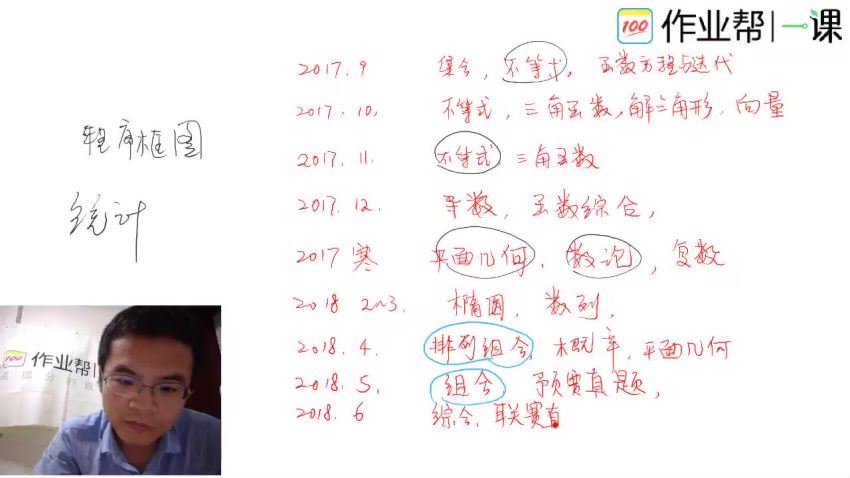 100 作业帮一课
程序框图
统计
2017.9 集合，不等式，函数方程与迭代
2017.10. 不等式，三角函数，解三角形．向量
2017.11. 不等式，三角函数
2017.12. 导数，函数综合，
2017寒 平面几何、数论，复数
2018 2~3. 椭圆，数列，
2018.4. 排列组合，概率，平面几何
2018.5. 组合，预赛真题，
2018.6 综合，联赛真
100 作业帮